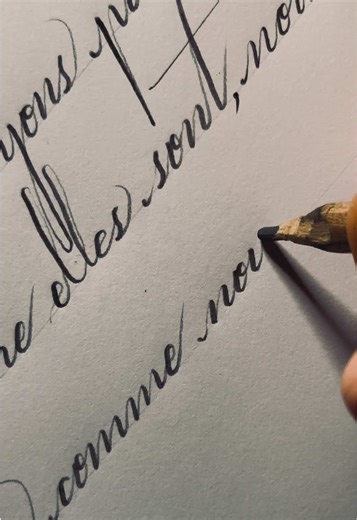 yons pa
elles sont, nou
comme nou